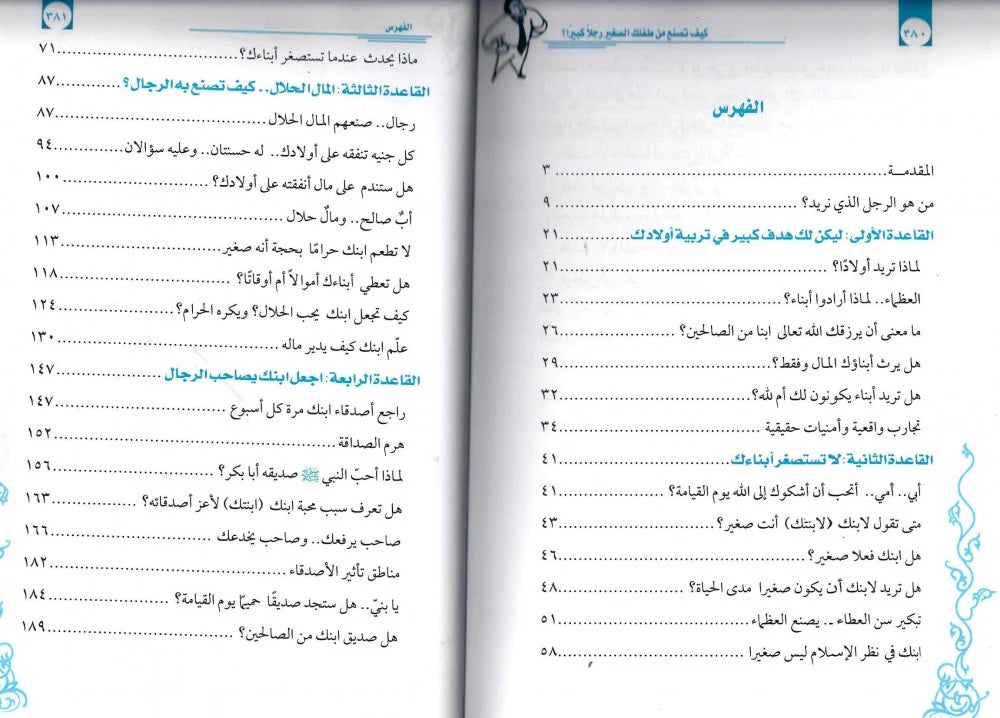 ٣٨٠
كيف تصنع من طفلك الصغير رجلاً كبيرًا؟
الفهرس
المقدمــة ................ ٣
من هو الرجل الذي نريد؟ ................ ٩
القاعدة الأولى: ليكن لك هدف كبير في تربية أولادك ................ ٢١
لماذا تريد أولادًا؟ ................ ٢١
العظماء.. لماذا أرادوا أبناء؟ ................ ٢٣
ما معنى أن يرزقك الله تعالى ابنا من الصالحين؟ ................ ٢٦
هل يرث أبناؤك المال وفقط؟ ................ ٢٩
هل تريد أبناء يكونون لك أم لله؟ ................ ٣٢
تجارب واقعية وأمنيات حقيقية ................ ٣٤
القاعدة الثانية: لا تستصغر أبناءك ................ ٤١
أبي.. أمي.. أتحب أن أشكوك إلى الله يوم القيامة؟ ................ ٤١
متى تقول لابنك (لابنتك) أنت صغير؟ ................ ٤٣
هل ابنك فعلا صغير؟ ................ ٤٦
هل تريد لابنك أن يكون صغيرا مدى الحياة؟ ................ ٤٨
تبكير سن العطاء .. يصنع العظماء ................ ٥١
ابنك في نظر الإسلام ليس صغيرا ................ ٥٨
الفهرس
٣٨١
ماذا يحدث عندما تستصغر أبناءك؟ ................ ٧١
القاعدة الثالثة: المال الحلال.. كيف تصنع به الرجال؟ ................ ٨٧
رجال.. صنعهم المال الحلال ................ ٨٧
كل جنيه تنفقه على أولادك.. له حسنتان.. وعليه سؤالان ................ ٩٤
هل ستندم على مال أنفقته على أولادك؟ ................ ١٠٠
أبٌ صالح.. ومالٌ حلال ................ ١٠٧
لا تطعم ابنك حرامًا بحجة أنه صغير ................ ١١٣
هل تعطي أبناءك أموالاً أم أوقاتًا؟ ................ ١١٨
كيف تجعل ابنك يحب الحلال؟ ويكره الحرام؟ ................ ١٢٤
علّم ابنك كيف يدير ماله ................ ١٣٠
القاعدة الرابعة: اجعل ابنك يصاحب الرجال ................ ١٤٧
راجع أصدقاء ابنك مرة كل أسبوع ................ ١٤٧
هرم الصداقة ................ ١٥٢
لماذا أحبّ النبي ﷺ صديقه أبا بكر؟ ................ ١٥٦
هل تعرف سبب محبة ابنك (ابنتك) لأعز أصدقائه؟ ................ ١٦٣
صاحب يرفعك.. وصاحب يخدعك ................ ١٦٦
مناطق تأثير الأصدقاء ................ ١٨٢
يا بنيّ.. هل ستجد صديقًا حميمًا يوم القيامة؟ ................ ١٨٤
هل صديق ابنك من الصالحين؟ ................ ١٨٩